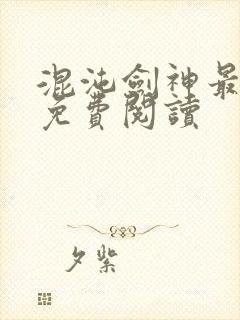 混沌劍神最
免費閱讀
夕紫